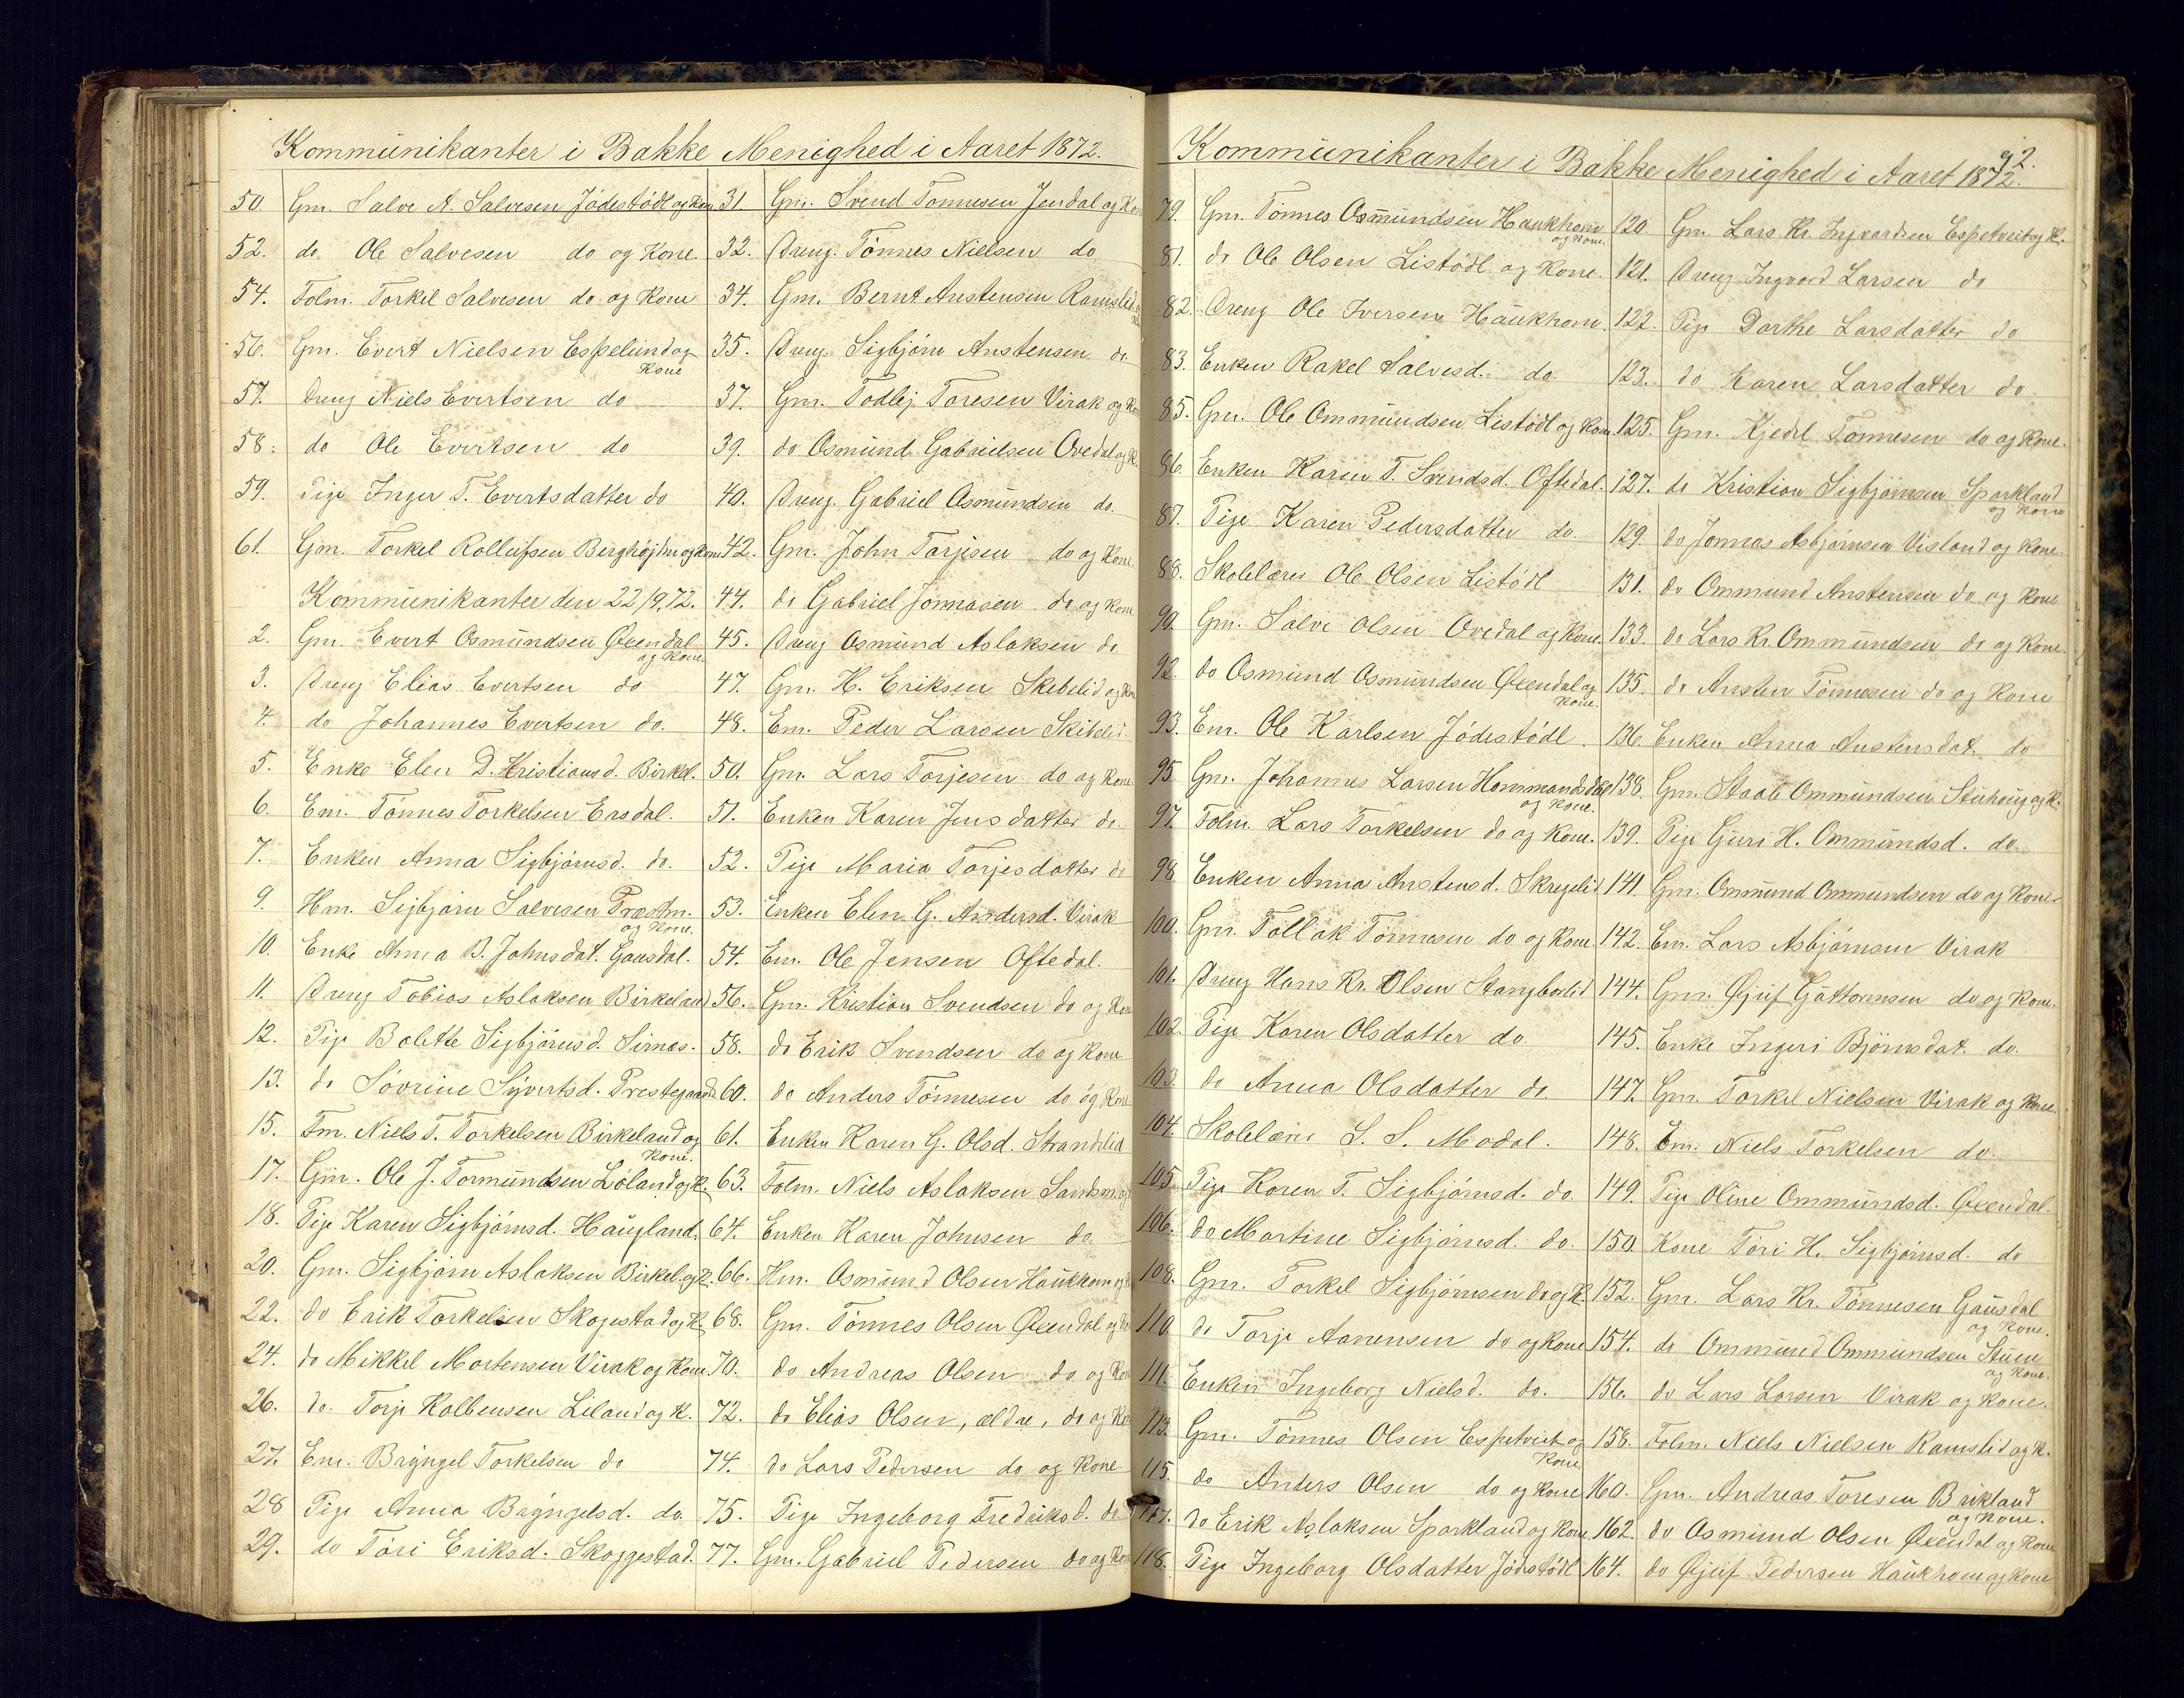 Kommunikanter i Bakke Menighed i Aaret 1872.
50. Gm. Salve A. Salvesen Jödestödl og Kone
52. do Ole Salvesen do og Kone.
54. Folm. Torkel Salvesen do og Kone
56. Gm. Evert Nielsen Espelund og
Kone
57. Dreng Niels Evertsen do
58. do Ole Evertsen do
59. Pige Inger T. Evertsdatter do
61. Gm. Torkel Rolleifsen Berghöjtm og Kone
Kommunikanter den 22/9, 72.
2. Gm. Evert Osmundsen Öeendal
og Kone.
3. Dreng Elias Evertsen do
4. do Johannes Evertsen do.
5. Enke Elen D. Kristiansd. Birkel.
6. Em. Tönnes Torkelsen Ersdal.
7. Enken Anna Sigbjörnsd. do.
9. Hm. Sigbjörn Salvesen Præstm.
og Kone.
10. Enke Anna B. Johnsdat. Gausdal.
11. Dreng Tobias Aslaksen Birkeland
12. Pige Bolette Sigbjörnsd. Sirnæs.
13. do Sövrine Syvertsd. Prestegaard
15. Fm. Niels T. Torkelsen Birkeland og
Kone.
17. Gm. Ole J. Tormundsen Löland og K.
18. Pige Karen Sigbjörnsd. Haugland.
20. Gm. Sigbjörn Aslaksen Birkel. og K.
22. do Erik Torkelsen Skogestad og K.
24. do Mikkel Mortensen Virak og Kone.
26. do. Torje Kolbensen Leland og K.
27. Em. Bryngel Torkelsen do
28 Pige Anna Bryngelsd. do.
29. do Töri Eriksd. Skoggestad.
31. Gm. Svend Tönnesen Jendal og Kone
32. Dreng. Tönnes Nielsen do
34. Gm. Bernt Anstensen Ramslid
35. Dreng. Sigbjörn Anstensen do
37. Gm. Todlej Toresen Virak og Kone
39. do Osmund Gabrielsen Ovedal og K.
40. Dreng. Gabriel Osmundsen do.
42. Gm. John Torjesen do og Kone
44. do Gabriel Jonnasen do og Kone
45. Dreng Osmund Aslaksen do
47. Gm. H. Eriksen Skebelid og Kone
48. Em. Peder Larsen Skibelid.
50. Gm. Lars Torjesen do og Kone
51. Enken Karen Jens datter do.
52. Pige Maria Torjesdatter do
53. Enken Elen G. Andersd. Virak
54. Em. Ole Jensen Oftedal.
56. Gm. Kristian Svendsen do og Kone
58. do Erik Svendsen do og Kone
60. do Anders Tönnesen do og Kone
61. Enken Karen G. Olsd. Strandlid
63. Folm. Niels Aslaksen Sandsm. og
64. Enken Karen Johnsen do
66. Hm. Osmund Olsen Haukhom og
68. Gm. Tönnes Olsen Öeendal og Kone
70. do Andreas Olsen do og Kone
72. do Elias Olsen, ældre, do og Kone
74. do Lars Pedersen do og Kone
75. Pige Ingeborg Fredriksd. do.
77. Gm. Gabriel Pedersen do og Kone
92.
Kommunikanter i Bakke Menighed i Aaret 1872.
79. Gm. Tönnes Osmundsen Haukhom
og Kone.
81. do Ole Olsen Listödl og Kone.
82. Dreng Ole Iversen Haukhom.
83. Enken Rakel Salvesd. do.
85. Gm. Ole Ommundsen Listödl og Kone.
86. Enken Karen T. Svendsd. Oftedal.
87. Pige Karen Pedersdatter do.
88. Skolelærer Ole Olsen Listödl
90. Gm. Salve Olsen Ovedal og Kone.
92. do Osmund Osmundsen Öeendal og
Kone.
93. Em. Ole Karlsen Jödestödl.
95. Gm. Johannes Larsen Hommandsdal
og Kone.
97. Folm. Lars Torkelsen do og Kone.
98. Enken Anna Anstensd. Skregelid
100. Gm. Tollak Tönnesen do og Kone
101. Dreng Hans Kr. Olsen Stangborlid
102. Pige Karen Olsdatter do.
103. do Anna Olsdatter do.
104. Skolelærer S. S. Modal.
105. Pige Karen T. Sigbjörnsd. do.
106. do Martine Sigbjörnsd. do.
108. Gm. Torkel Sigbjörnsen do og K.
110. do Torje Aanensen do og Kone
111. Enken Ingeborg Nielsd. do.
113. Gm. Tönnes Olsen Espetveit og
Kone.
115. do Anders Olsen do og Kone
117. do Erik Aslaksen Sporkland og Kone
118. Pige Ingeborg Olsdatter Jödestödl
120 Gm. Lars Kr. Ingvardsen Espetveit og K.
121. Dreng Ingvard Larsen do
122. Pige Dorthe Larsdatter do
123. do Karen Larsdatter do.
125. Gm. Kjedel Tönnesen do og Kone.
127. do Kristian Sigbjörnsen Sporkland
og Kone
129. do Jonnas Asbjörnsen Visland og Kone.
131. do Ommund Anstensen do og Kone
133. do Lars Kr. Ommundsen do og Kone.
135. do Ansten Tönnesen do og Kone
136. Enken Anna Anstensdat. do
138. Gm. Staale Ommundsen Stuhoug og K.
139. Pige Guri H. Ommundsd. do.
141. Gm. Ommund Ommundsen do og Kone.
142. Em. Lars Asbjörnsen Virak
144. Gm. Öjuf Guttormsen do og Kone.
145. Enke Ingeri Björnsdat. do.
147. Gm. Torkel Nielsen Virak og Kone.
148. Em. Niels Torkelsen do.
149. Pige Oline Ommundsd. Öeendal.
150. Kone Töri H. Sigbjörnsd. do
152. Gm. Lars Kr. Tönnesen Gausdal
og Kone.
154. do Ommund Ommundsen Stuen
og Kone.
156. do Lars Larsen Virak og Kone.
158. Folm. Niels Nielsen Ramslid og K.
160. Gm. Andreas Toresen Birkland
og Kone.
162. do Osmund Olsen Öeendal og Kone
164. do Öjuf Pedersen Haukhom og Kone